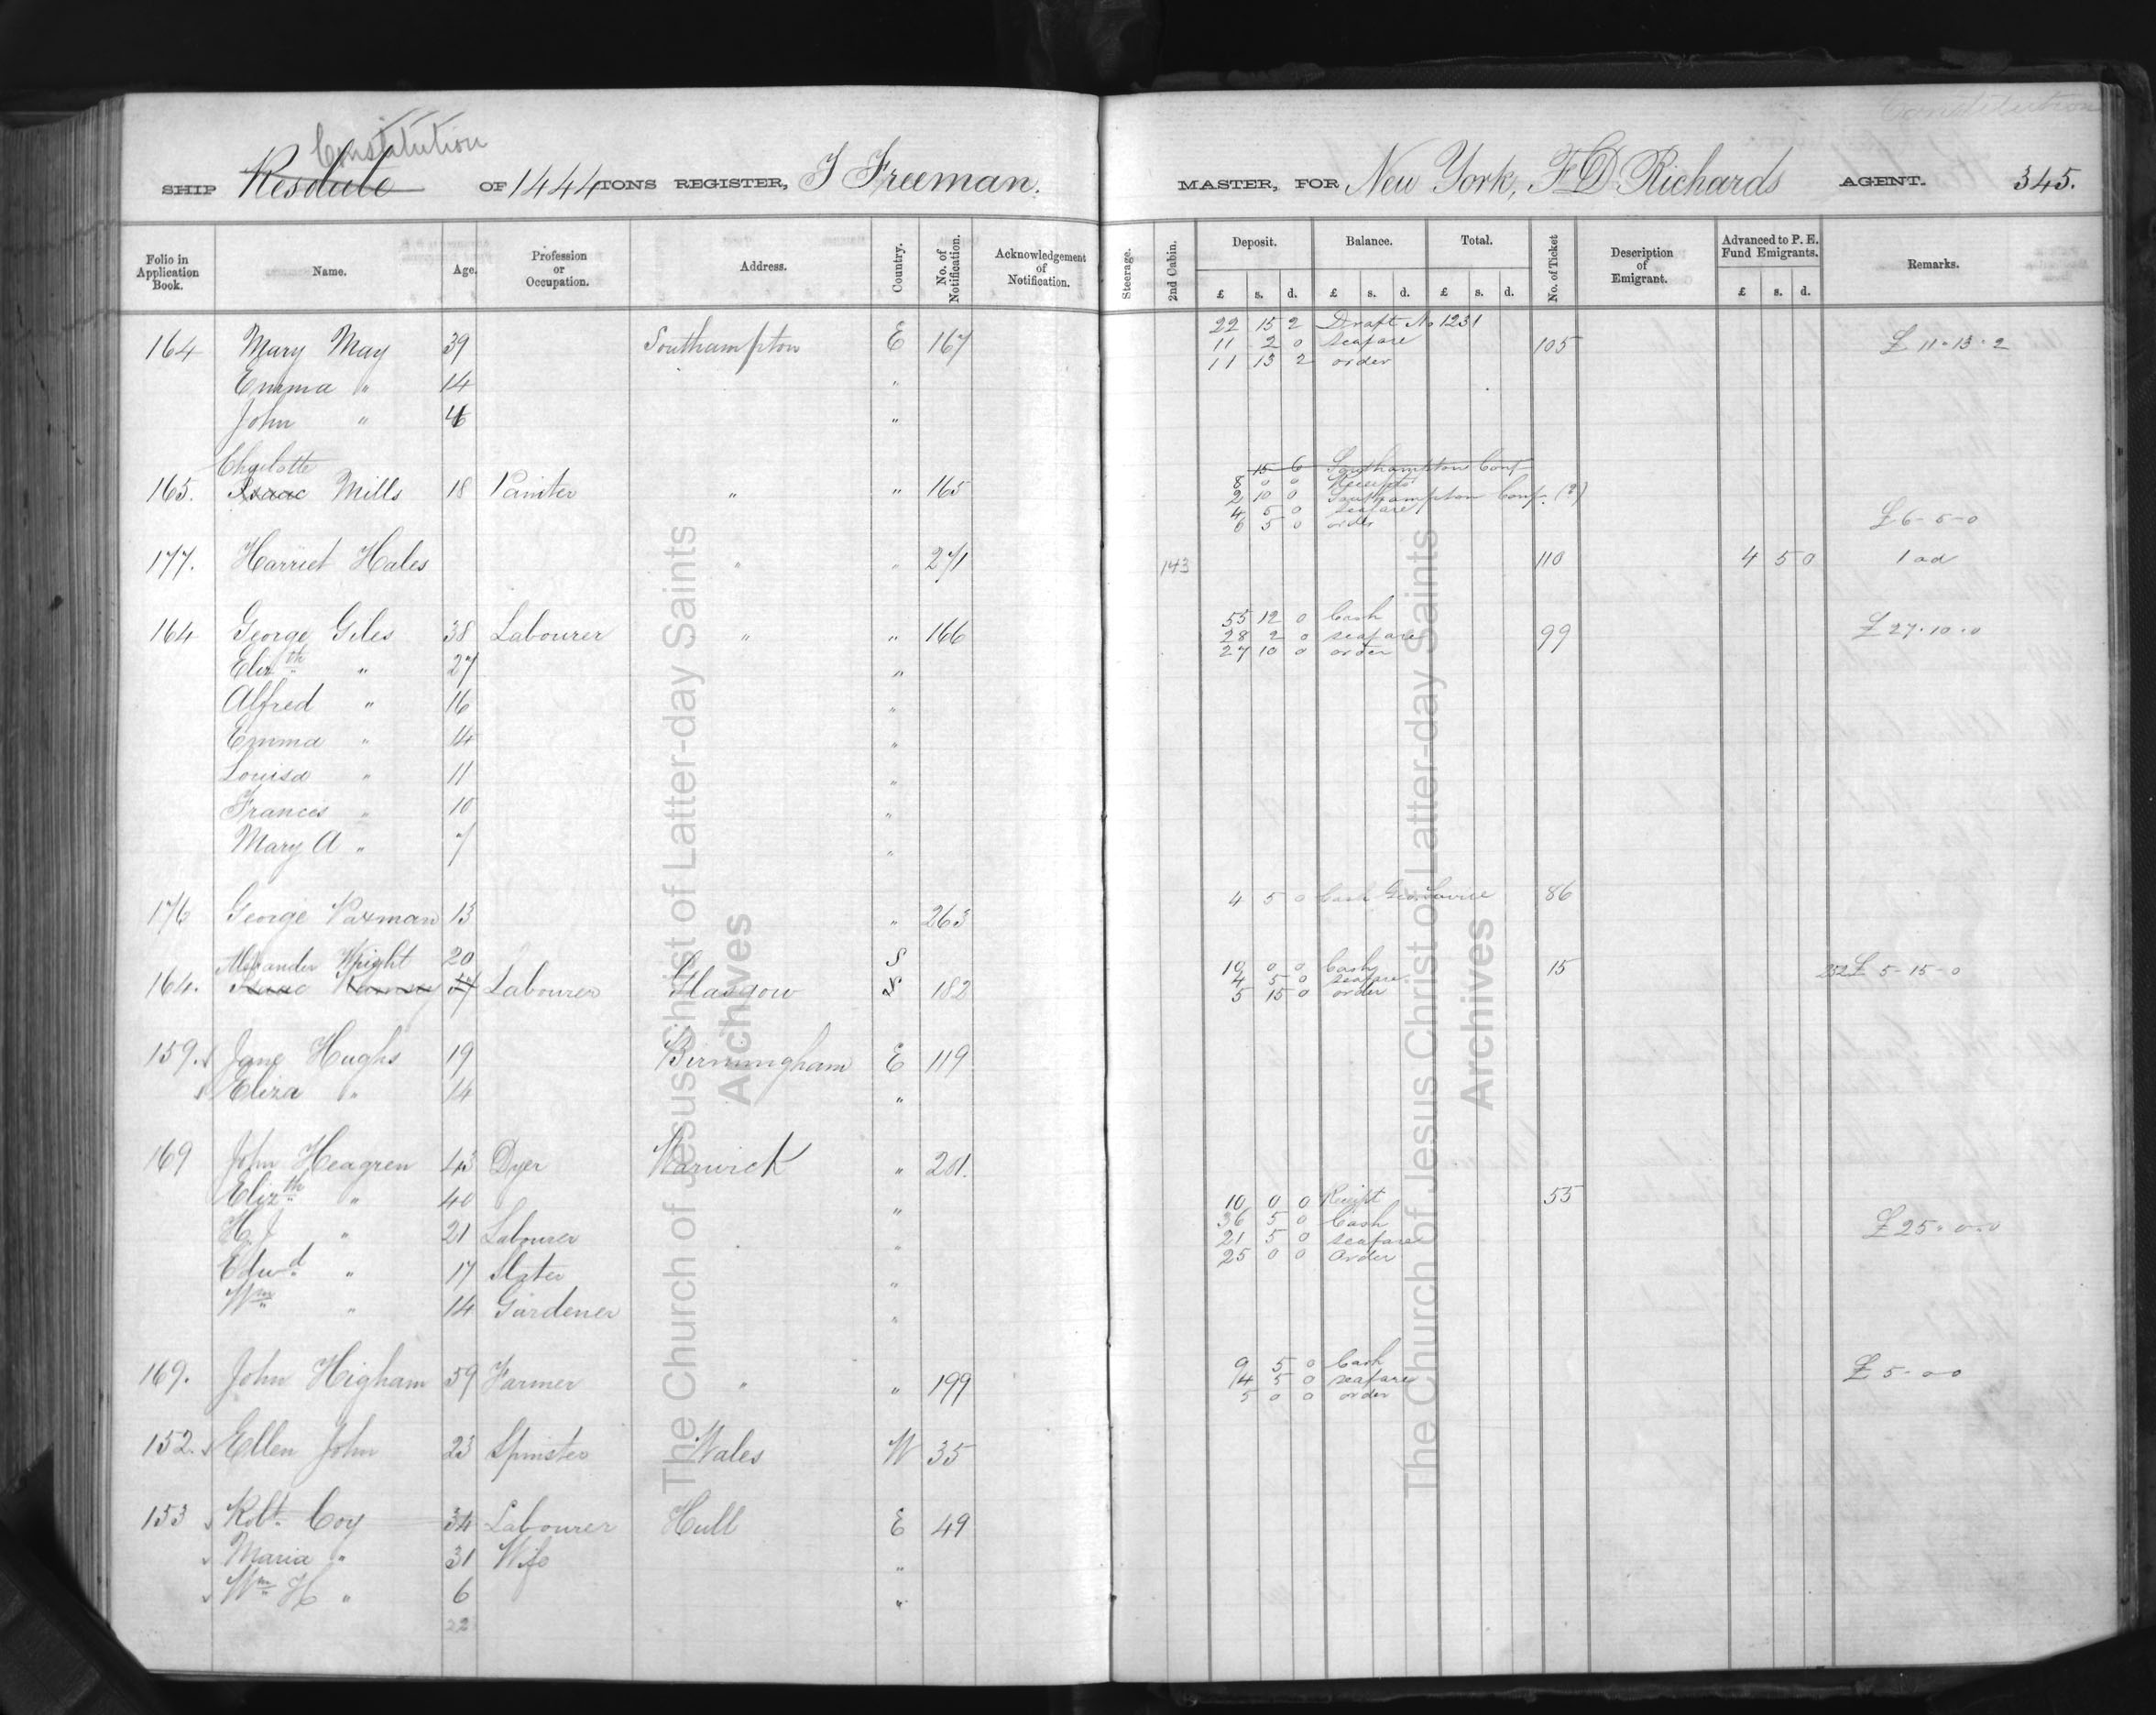 Constitution
SHIP Resolute OF 1444 TONS REGISTER, J Freeman. MASTER, FOR New York, F D Richards AGENT. 345.
Folio in Application Book. Name. Age. Profession or Occupation. Address. Country. No. of Notification. Acknowledgement of Notification. Steerage. 2nd Cabin. Deposit. Balance. Total. No. of Ticket Description of Emigrant. Advanced to P. E. Fund Emigrants. Remarks.
£ s. d. £ s. d. £ s. d. £ s. d.
22 15 2 Draft No 1231
164 Mary May 39 Southampton E 167 11 2 0 seafare 105 £ 11-13-2
11 13 2 order
Emma " 14 "
John " "
Charlotte
15 6 Southampton Conf
165. Isaac Mills 18 Painter " " 165 8 0 0 Receipts
2 10 0 Southampton Conf.
4 5 0 seafare
6 5 0 order £6-5-0
177. Harriet Hales " " 271 143 110 4 5 0 1 ad
55 12 0 Cash
164 George Giles 38 Labourer " " 166 28 2 0 seafare 99 £27.10.0
27 10 0 order
Elizth " 27 "
Alfred " 16 "
Emma " 14 "
Louisa " 11 "
Frances " 10 "
Mary A " 7 "
176 George Paxman 13 " 263 4 5 0 Cash Geo 86
Alexander Wright 20 S
10 0 0 Cash 15
164. Isaac Labourer Glasgow S 182 4 5 0 seafare £ 5-15-0
5 15 0 order
159. Jane Hughs 19 Birmingham E 119
Eliza " 14 "
169 John Heagren 43 Dyer Warwick " 201.
Elizth " 40 " 10 0 0 Receipt 55
36 5 0 Cash
H J " 21 Labourer " 21 5 0 seafare £25-0-0
25 0 0 Order
Edwd " 17 Slater "
Wm " 14 Gardener "
9 5 0 Cash
169. John Higham 59 Farmer " " 199 4 5 0 seafare £ 5-0-0
5 0 0 order
152. Ellen John 23 Spinster Wales W 35
153 Robt. Coy 34 Labourer Hull E 49
Maria " 31 Wife "
Wm H " 6 "
22
The Church of Jesus Christ of Latter-day Saints
Archives
The Church of Jesus Christ of Latter-day Saints
Archives